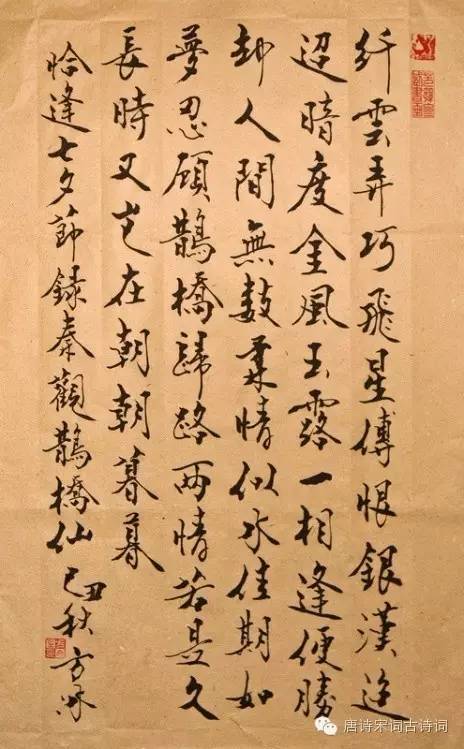 纤雲弄巧飛星傳恨銀漢迢
迢暗度金風玉露一相逢便勝
却人間無數柔情似水佳期如
夢忍顧鵲橋歸路兩情若是久
長時又豈在朝朝暮暮
恰逢七夕節錄秦觀鵲橋仙己丑秋方
唐诗宋词古诗词